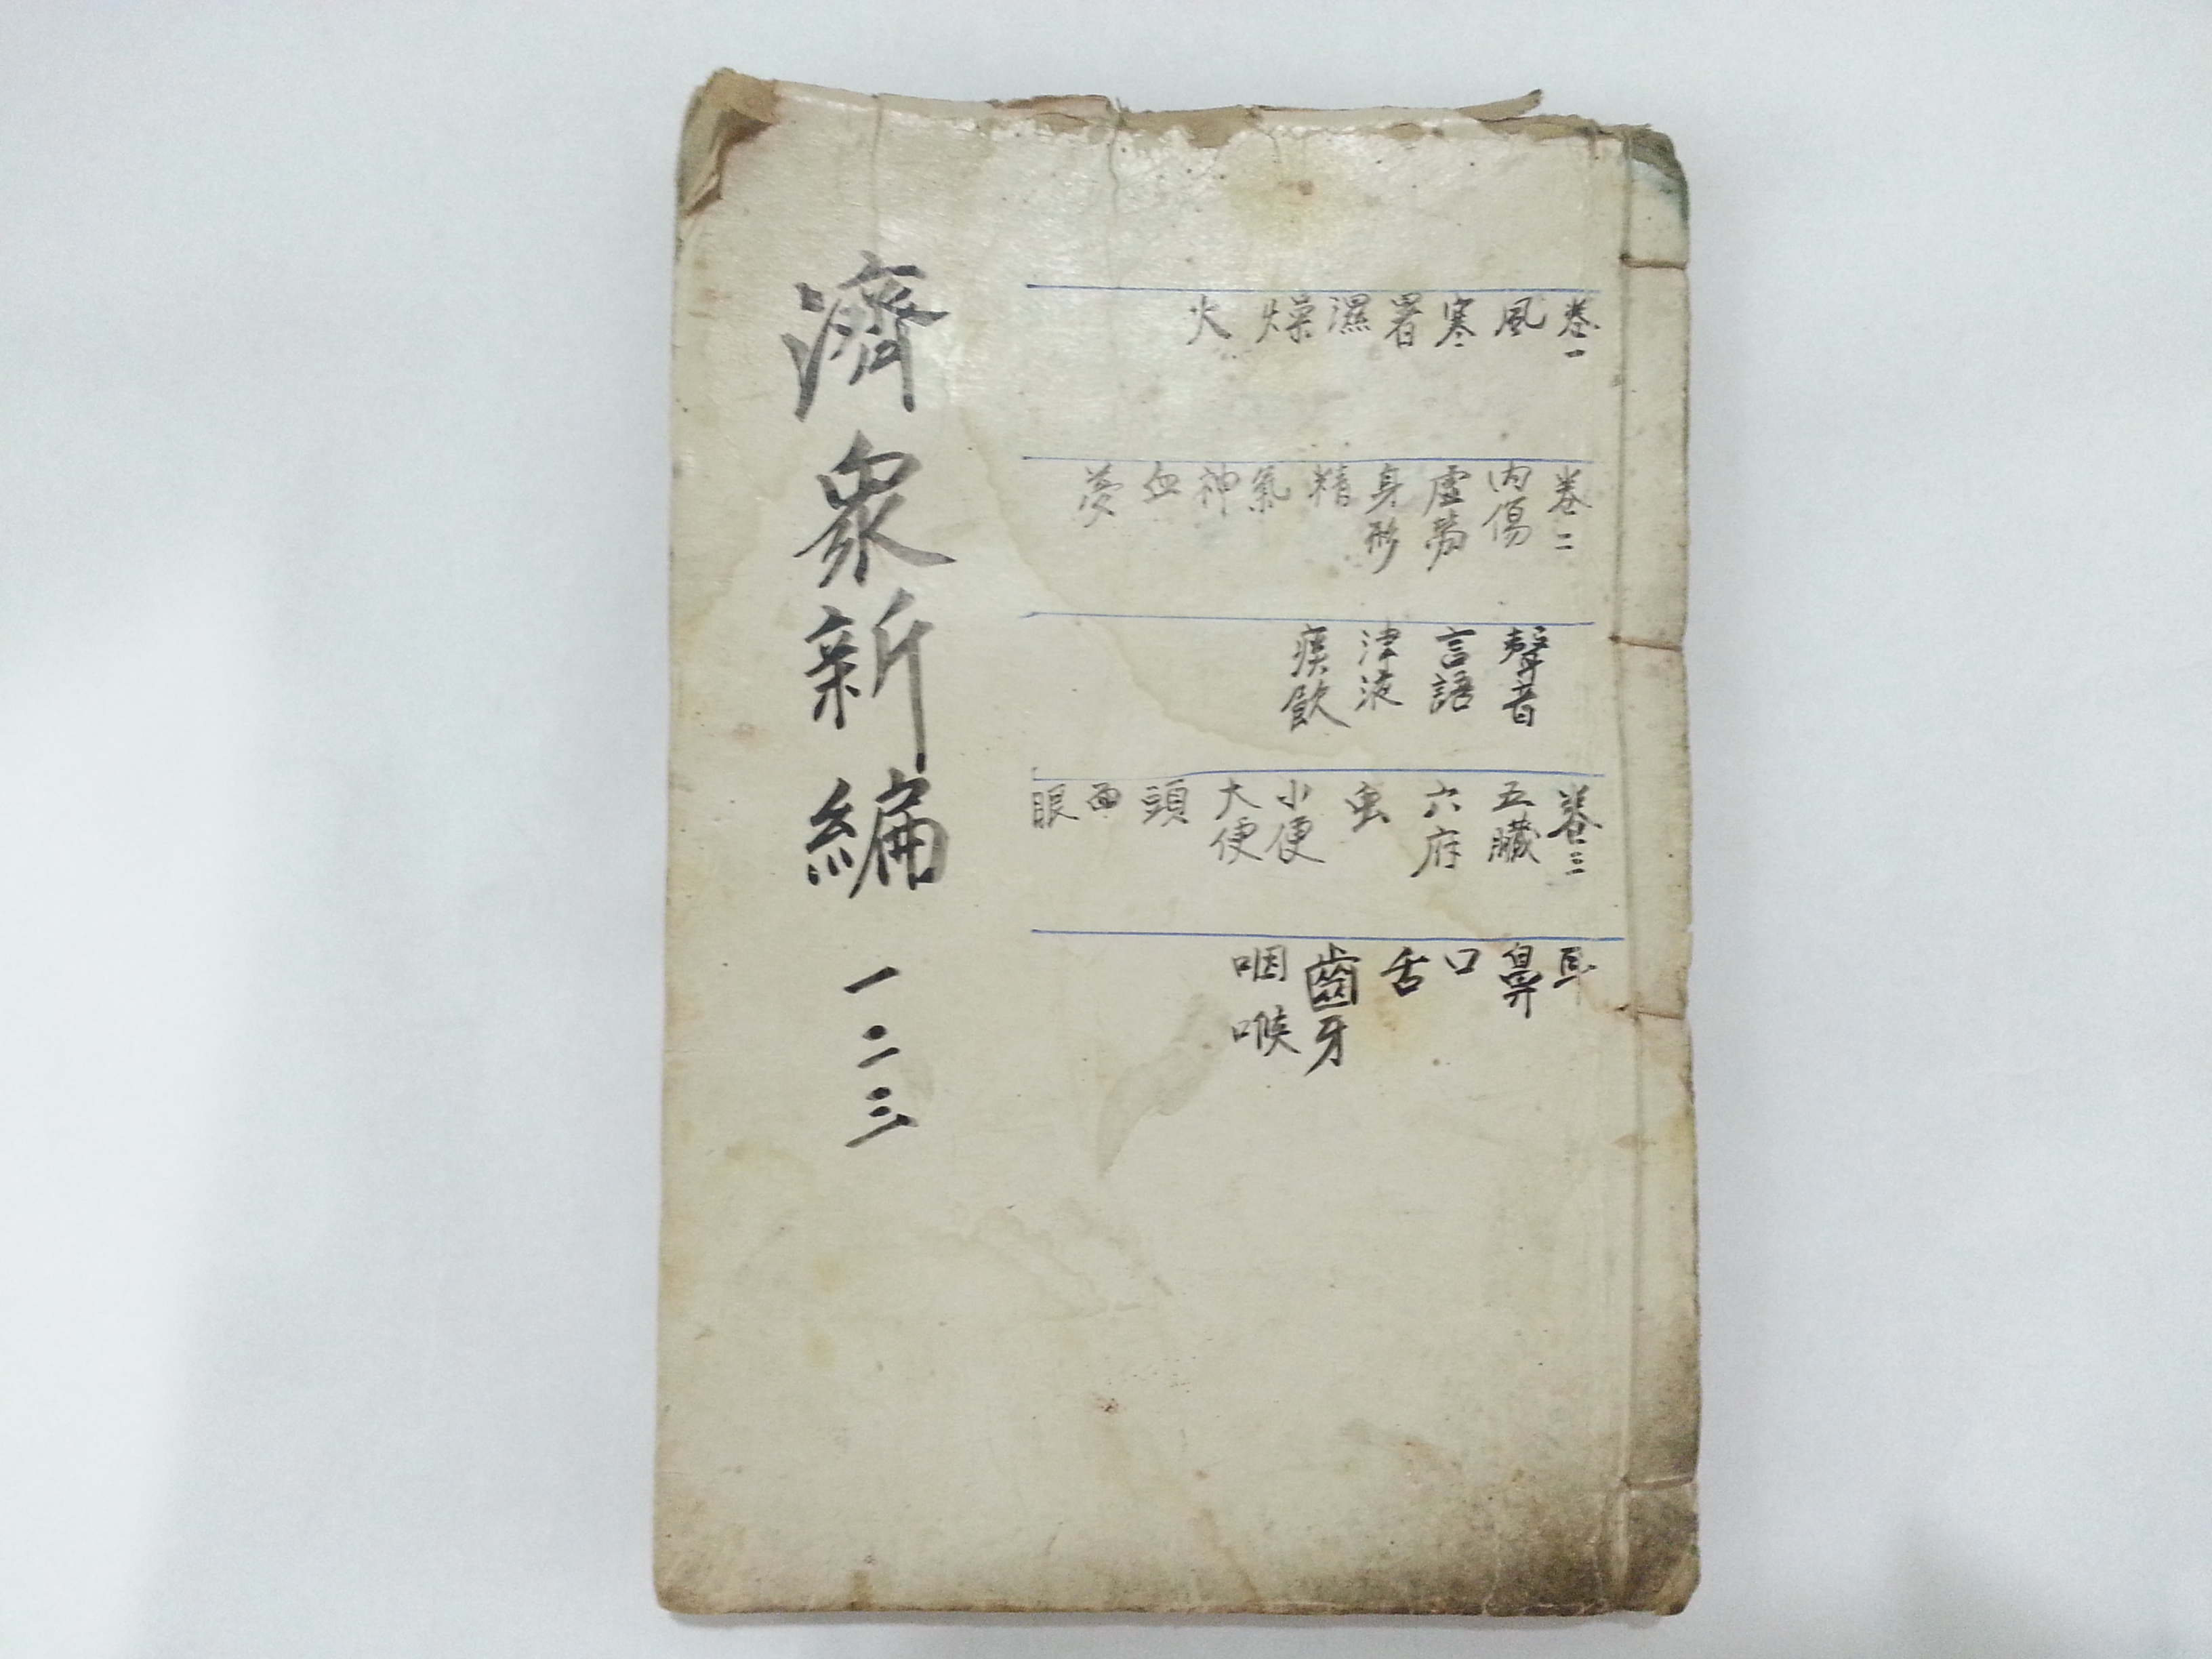 卷一 風 寒 暑 濕 燥 火
卷二 内傷 虛勞 身形 精 氣 神 血 夢
聲音 言語 津液 痰飲
卷三 五臟 六府 虫 小便 大便 頭 面 眼
耳 鼻 口 舌 齒牙 咽喉
濟衆新編 一二三